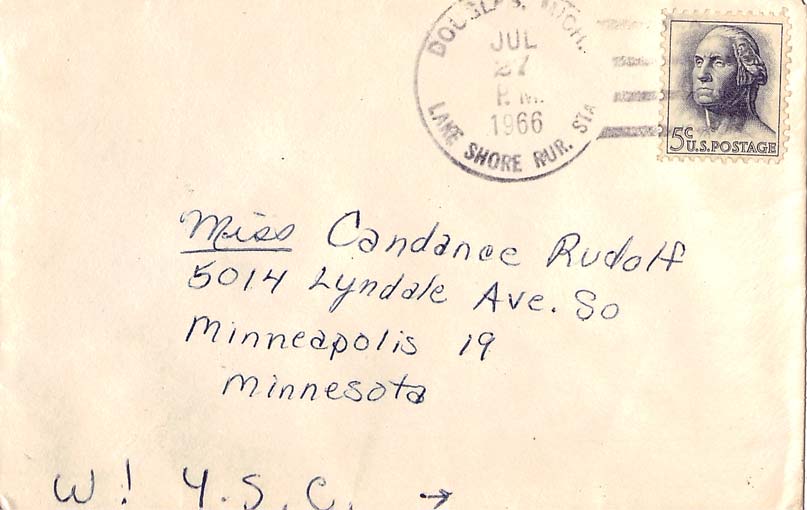 DOUGLAS, MICH.
JUL
27
P.M.
1966
LAKE SHORE RUR. STA
5c
U.S.POSTAGE
Miss Candance Rudolf
5014 Lyndale Ave. So
Minneapolis 19
Minnesota
W! Y.S.C. →